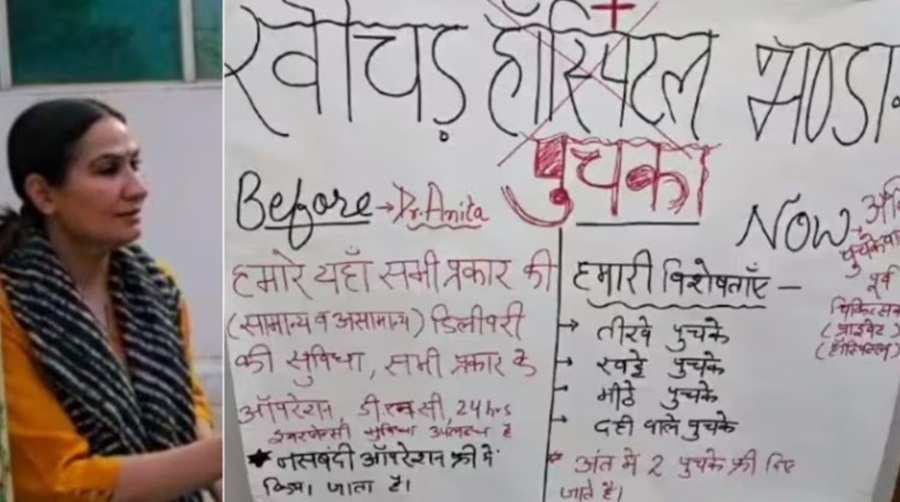 खीचड़ हॉस्पिटल भण्डा
पुचका
Before → Dr. Anita
हमारे यहाँ सभी प्रकार की
(सामान्य व असामान्य) डिलीवरी
की सुविधा, सभी प्रकार के
ऑपरेशन, डी.एन.सी, 24 hrs
इमरजेन्सी सुविधा उपलब्ध है
★ नसबंदी ऑपरेशन फ्री में
किया जाता है।
हमारी विशेषताएँ –
→ तीखे पुचके
→ खट्टे पुचके
→ मीठे पुचके
→ दही वाले पुचके
* अंत में 2 पुचके फ्री दिए
जाते है।
Now
पूर्व
(प्राईवेट)